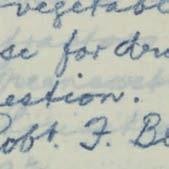 vegetabl
se for dr
estion.
Robt. F. B